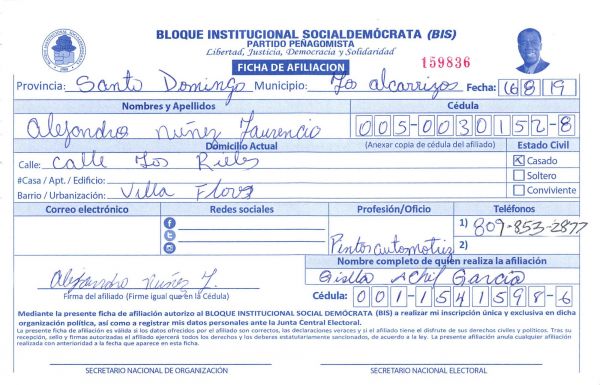 BLOQUE INSTITUCIONAL SOCIALDEMÓCRATA (BIS)
PARTIDO PEÑAGOMISTA
Libertad, Justicia, Democracia y Solidaridad
FICHA DE AFILIACION
159836
Provincia: Santo Domingo Municipio: Los alcarrizos Fecha: 16 8 19
Nombres y Apellidos Cédula
Alejandro Nuñez Laurencio 005-0030152-8
Domicilio Actual (Anexar copia de cédula del afiliado) Estado Civil
Calle: Calle Los Rieles Casado
#Casa / Apt. / Edificio: Soltero
Barrio / Urbanización: Villa Conviviente
Correo electrónico Redes sociales Profesión/Oficio Teléfonos
1) 809-853-2877
Pintor automotriz 2)
Nombre completo de quien realiza la afiliación
Alejandro Nuñez L. García
Firma del afiliado (Firme igual que en la Cédula) Cédula: 001-1541598-6
Mediante la presente ficha de afiliación autorizo al BLOQUE INSTITUCIONAL SOCIAL DEMÓCRATA (BIS) a realizar mi inscripción única y exclusiva en dicha
organización política, así como a registrar mis datos personales ante la Junta Central Electoral.
La presente ficha de afiliación es válida si los datos ofrecidos por el afiliado son correctos, las declaraciones veraces y si el afiliado tiene el disfrute de sus derechos civiles y políticos. Tras su
recepción, sello y firmas autorizadas el afiliado ejercerá todos los derechos y los deberas estatutariamente sancionados, de acuerdo a la ley. La presente afiliación anula cualquier afiliación
realizada con anterioridad a la fecha que aparece en esta ficha.
SECRETARIO NACIONAL DE ORGANIZACIÓN SECRETARIO NACIONAL ELECTORAL